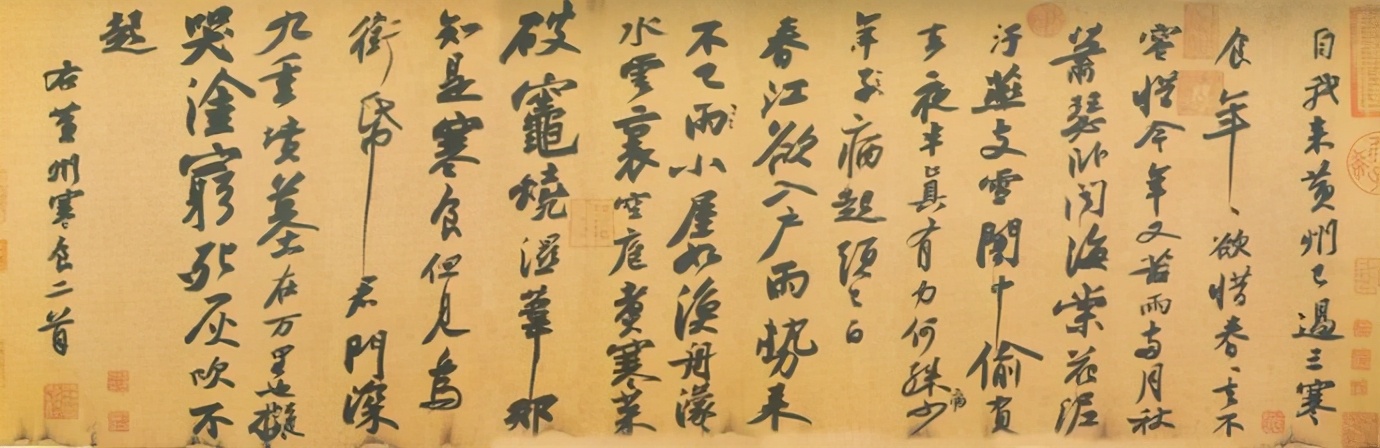 自我来黄州已過三寒
食年〻欲惜春〻去不
容惜今年又苦雨兩月秋
蕭瑟卧聞海棠花泥
汙燕支雪闇中偷負
去夜半真有力何殊少病
年子病起頭已白
春江欲入户雨勢来
不已雨小屋如漁舟濛
水雲裏空庖煮寒菜
破竈燒濕葦那
知是寒食但見烏
銜帋君門深
九重墳墓在万里也擬
哭塗窮死灰吹不
起
右黄州寒食二首